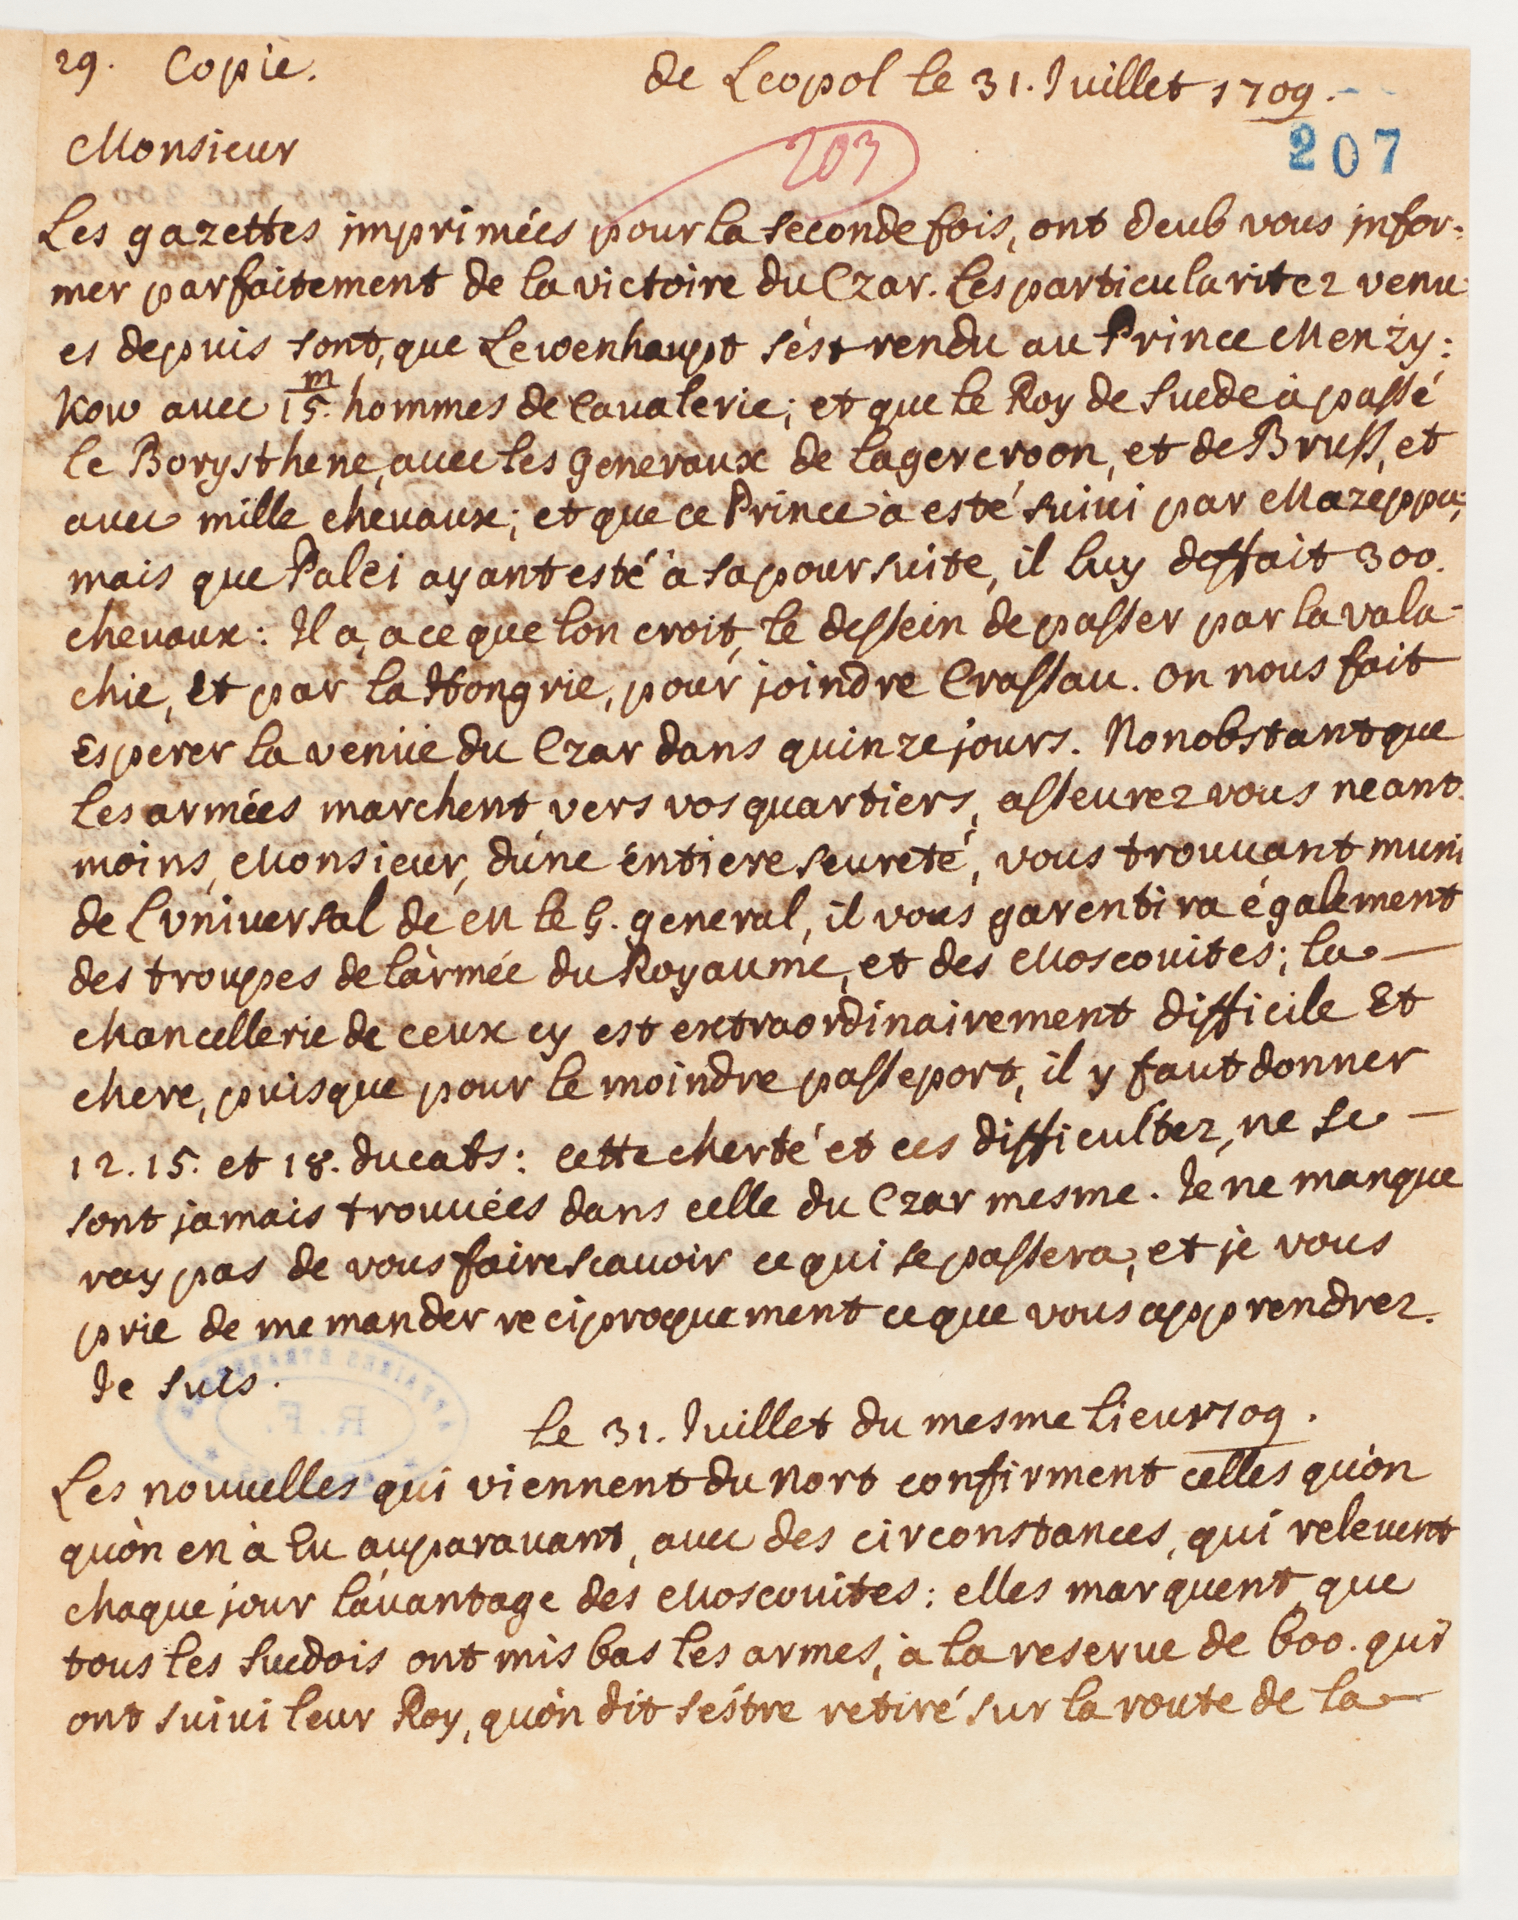 29. Copie.
de Leopol le 31. Juillet 1709.
207
203
Monsieur
Les gazettes imprimées pour la seconde fois, ont deub vous infor=
mer parfaitement de la victoire du Czar. Les particularitez venu
es depuis sont, que Lewenhaupt s'est rendu au Prince Menży:
kow avec 15.m hommes de cavalerie; et que le Roy de Suede à passé
le Borysthene, avec les generaux de Lagercroon, et de Bruss, et
avec mille chevaux; et que ce Prince à esté suivi par Mazeppa;
mais que Palei ayant esté à sa poursuite, il luy deffait 300.
chevaux: Il a, a ce que lon croit, le dessein de passer par la vala-
chie, et par la Hongrie, pour joindre Crassau. On nous fait
Esperer la venüe du Czar dans quinze jours. Nonobstant que
les armées marchent vers vos quartiers, asseurez vous neant.
moins, Monsieur, d'une éntiere seureté, vous trouvant muni
de l'vniversal de en le G. general, il vous garentira également
des troupes de l'armée du Royaume, et des Moscovites; la
chancellerie de ceux cy est extraordinairement difficile Et
chere, puisque pour le moindre passeport, il y faut donner
12. 15. et 18. ducats: cette cherté et ces difficultez, ne se
sont jamais trouvées dans celle du Czar mesme. Je ne manque
ray pas de vous faire scavoir ce qui se passera, et je vous
prie de me mander reciproquement ce que vous apprendrez.
Je suis.
R. F.
le 31. Juillet du mesme lieu 1709.
Les nouvelles qui viennent du Nort confirment celles qu'on
qu'on en à Eu auparavant, avec des circonstances, qui relevent
chaque jour l'avantage des Moscovites: elles marquent que
tous les Suedois ont mis bas les armes, à la reserve de 600. qui
ont suivi leur Roy, qu'on dit s'estre retiré sur la route de la